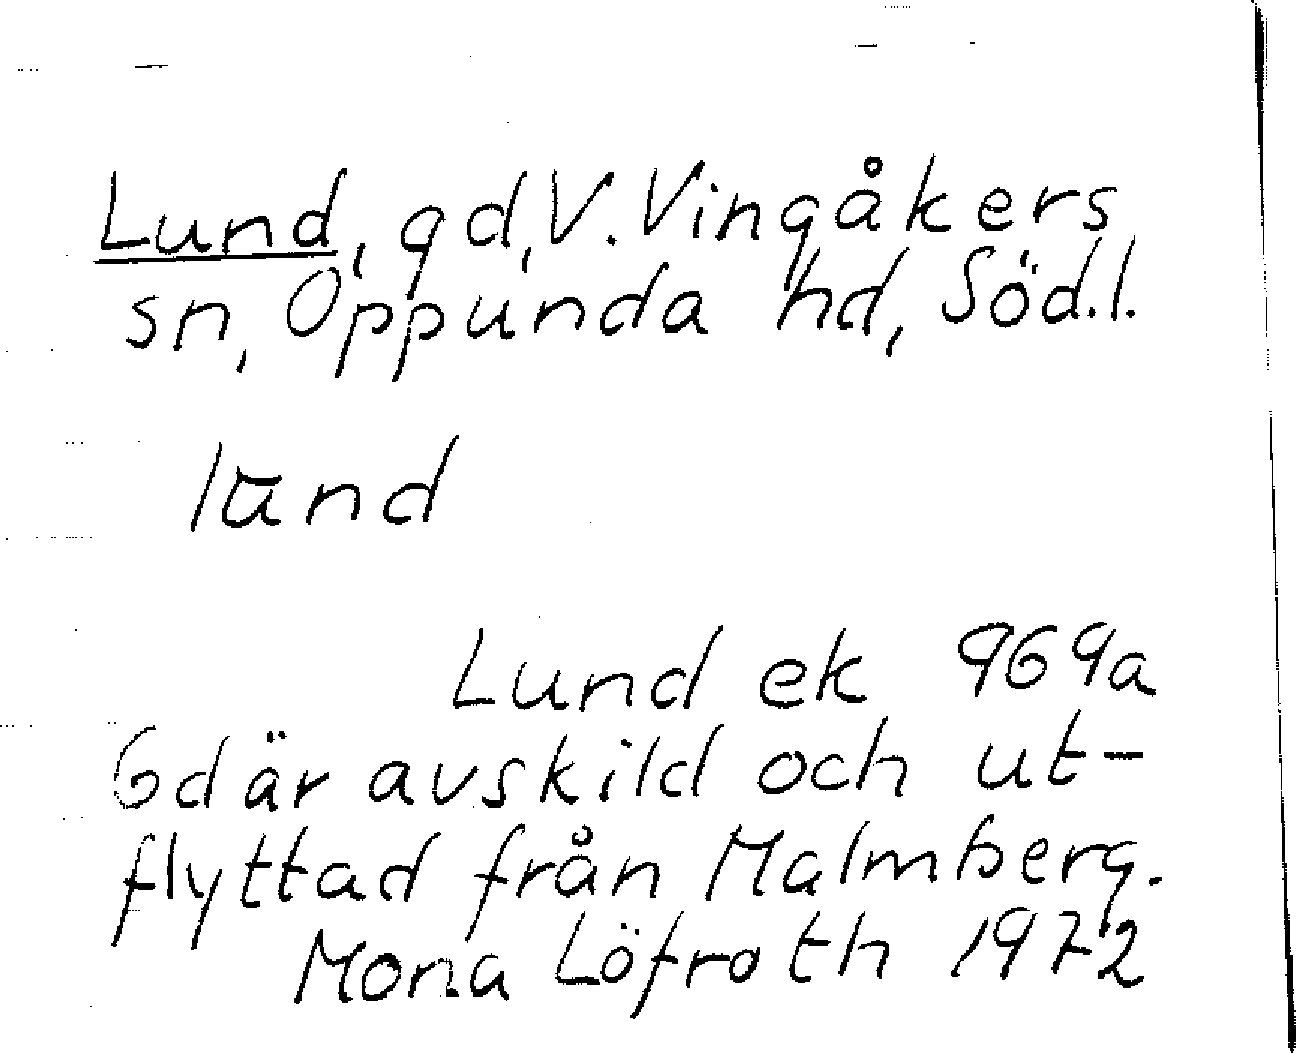 Lund, gd, V. Vingåkers
sn, Oppunda hd, Söd.l.
lūnd
Lund ek 969a
Gd är avskild och ut-
flyttad från Malmberg.
Mona Löfroth 1972